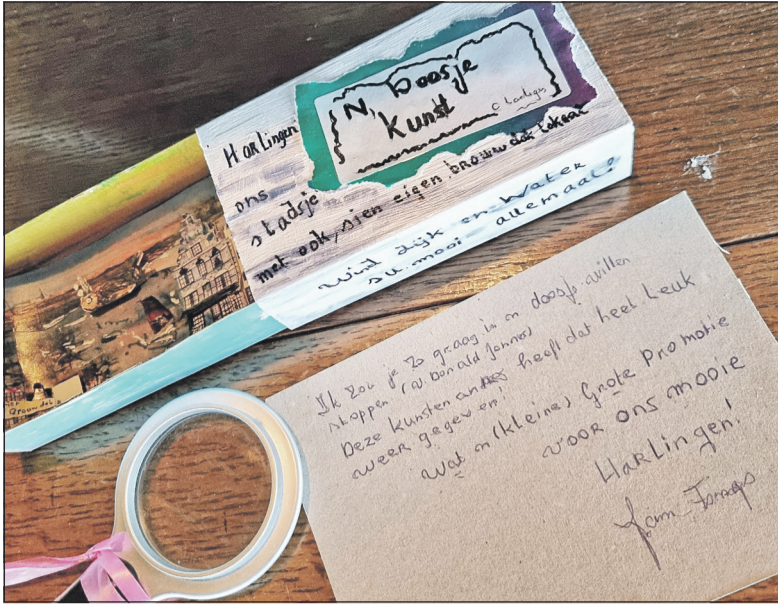 N, Doosje
Kunst
Harlingen
ons
stadsje
met ook, sien eigen brouw dat lokaal
Wind Dijk en Water
su mooi allemaal!
Ik zou je zo graag in en doosje willen
stoppen (v. Donald Jones)
Deze kunstenares heeft dat heel Leuk
weer gegeven!
Wat n (kleine) Grote Promotie
voor ons mooie
Harlingen!